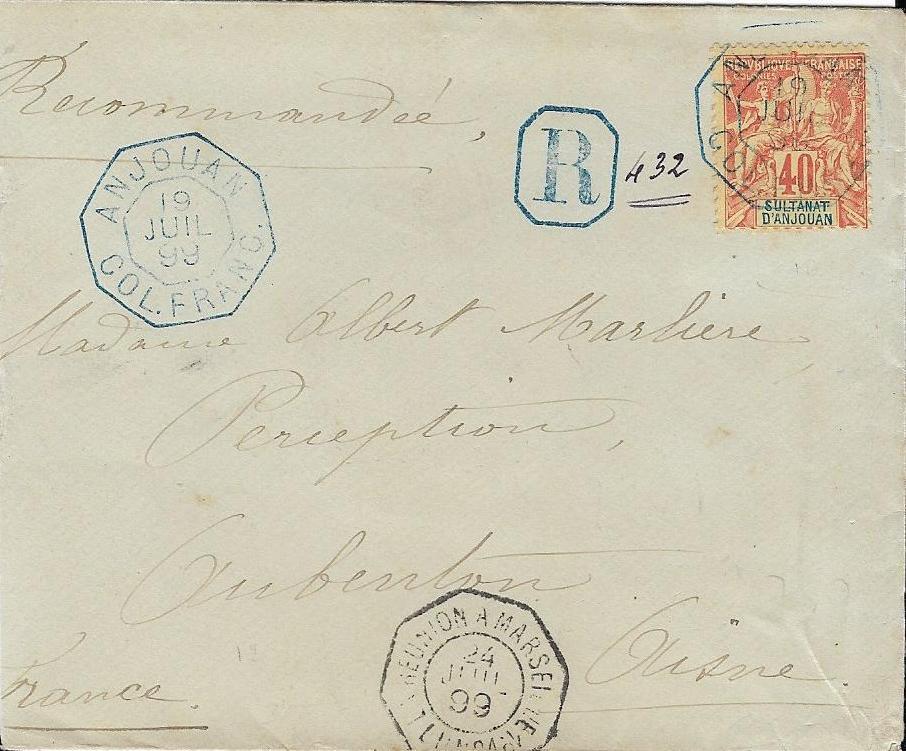 Recommandée,
R
432
RÉPUBLIQUE FRANÇAISE
COLONIES POSTES
40
SULTANAT
D'ANJOUAN
ANJOUAN
19
JUIL
99
COL. FRANC.
19
JUIL
Madame Albert Marlière,
Perception,
Aubenton
Aisne
France
LA RÉUNION A MARSEILLE
24
JUIL
99